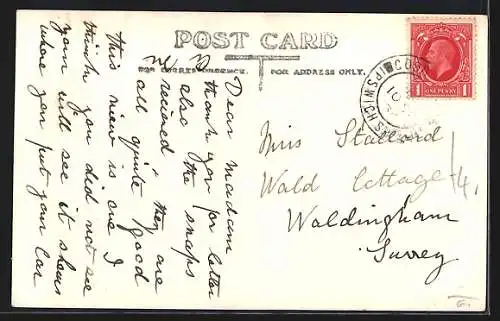 POST CARD
FOR CORRESPONDENCE.
FOR ADDRESS ONLY.
Dear Madam
thank you for letter
also the snaps
recieved they are
all quite good
this view is one I
think you did not see
you will see it shows
where you put your car
Miss Stallard
Wald Cottage
Waldingham
Surrey
ONE PENNY
IPSWICH